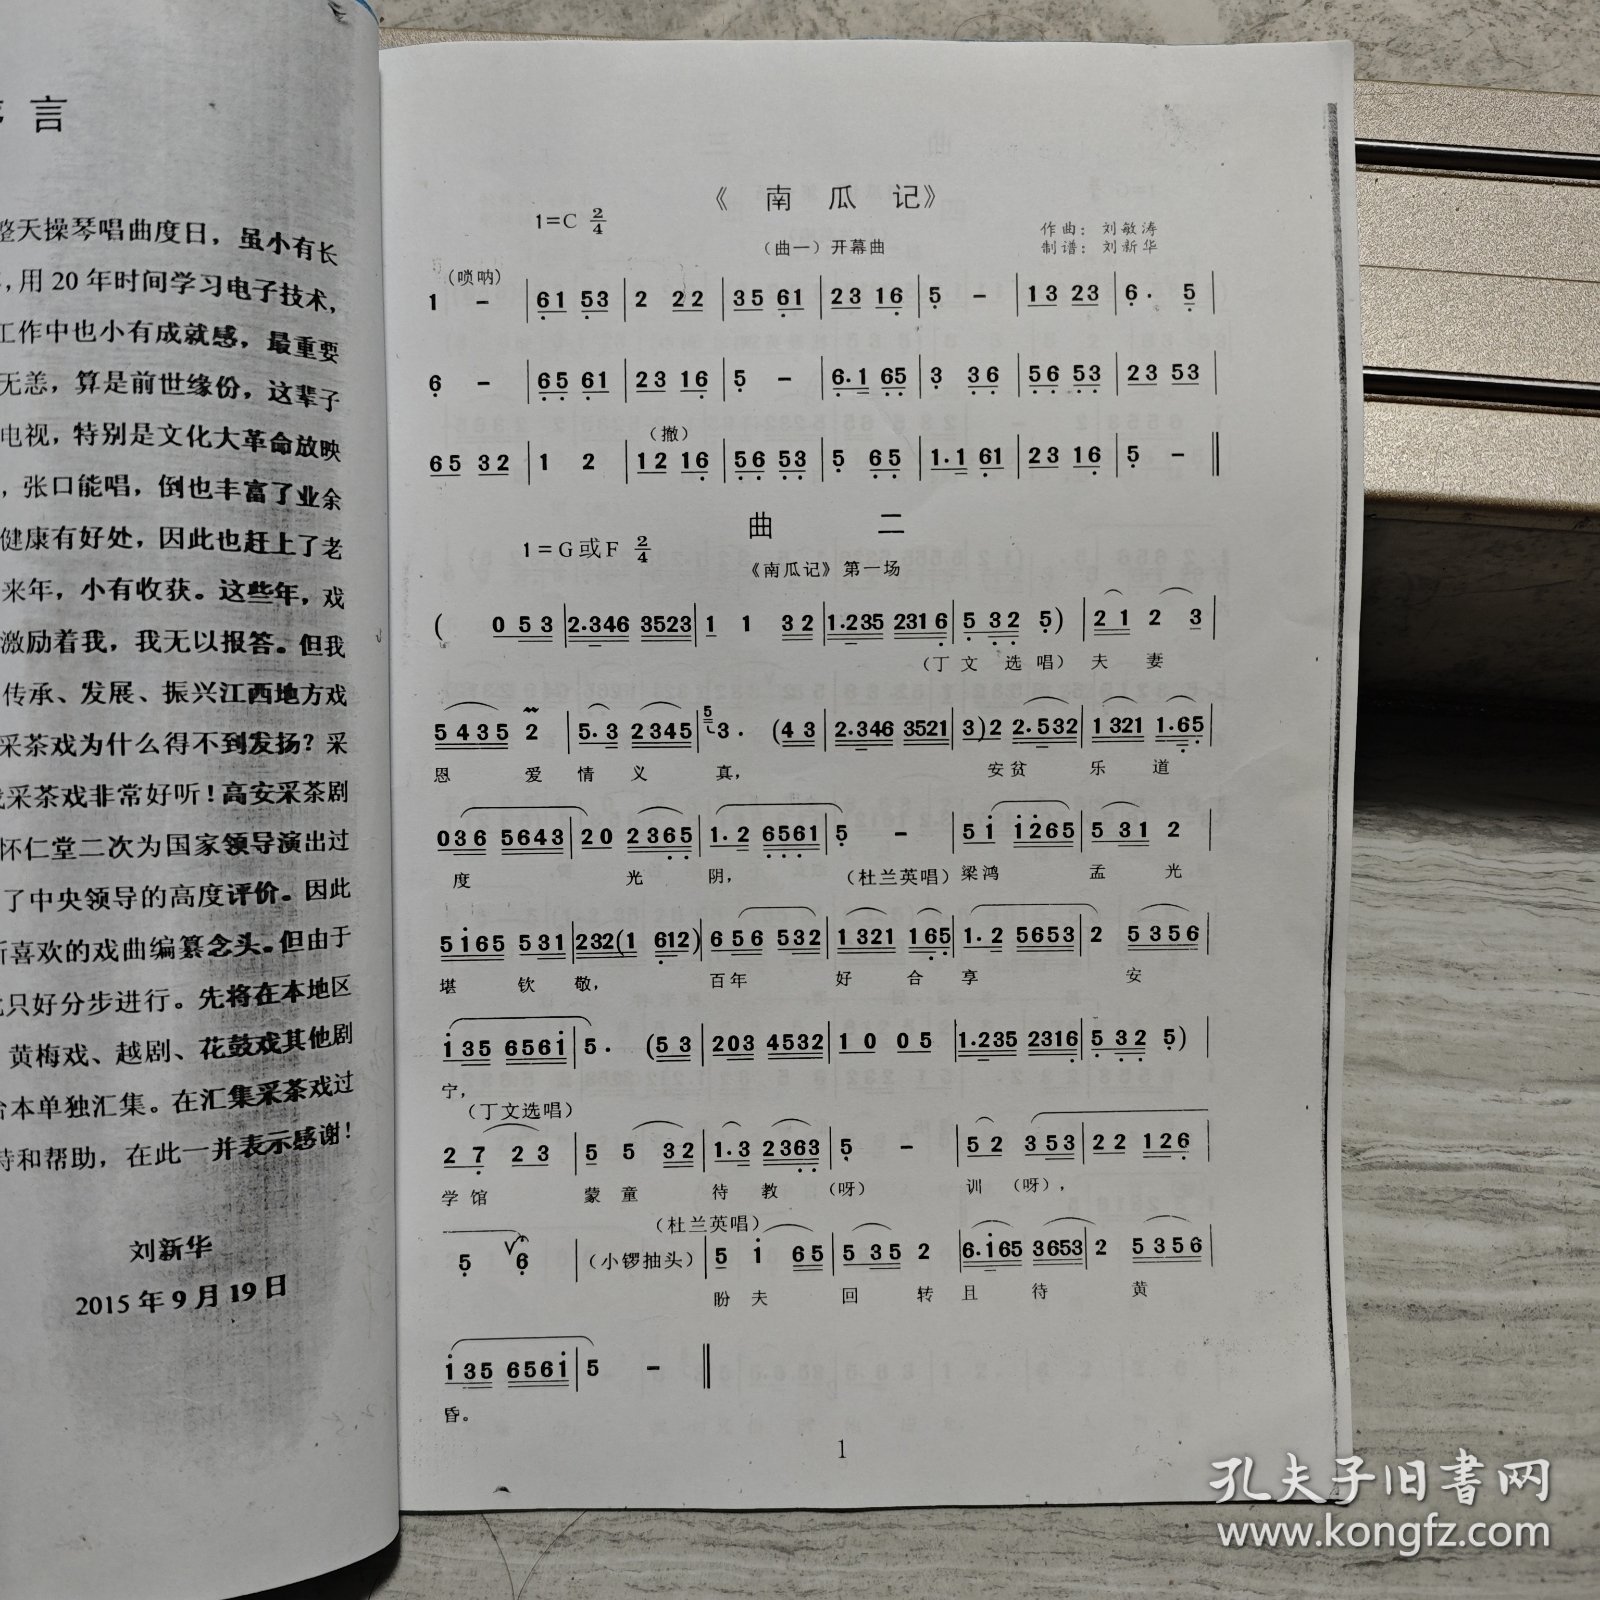 言
整天操琴唱曲度日，虽小有长
，用20年时间学习电子技术，
工作中也小有成就感，最重要
无恙，算是前世缘份，这辈子
电视，特别是文化大革命放映
，张口能唱，倒也丰富了业余
健康有好处，因此也赶上了老
来年，小有收获。这些年，戏
激励着我，我无以报答。但我
传承、发展、振兴江西地方戏
采茶戏为什么得不到发扬？采
采茶戏非常好听！高安采茶剧
怀仁堂二次为国家领导演出过
了中央领导的高度评价。因此
所喜欢的戏曲编纂念头。但由于
只好分步进行。先将在本地区
黄梅戏、越剧、花鼓戏其他剧
本单独汇集。在汇集采茶戏过
持和帮助，在此一并表示感谢！
刘新华
2015年9月19日
《 南 瓜 记》
1=C 2/4
作曲：刘敏涛
（曲一）开幕曲
制谱：刘新华
（唢呐）
1 - | 61 53 | 2 22 | 35 61 | 23 16 | 5 - | 13 23 | 6. 5 |
6 - | 65 61 | 23 16 | 5 - | 6.1 65 | 3 36 | 56 53 | 23 53 |
（撤）
65 32 | 1 2 | 12 16 | 56 53 | 5 65 | 1.1 61 | 23 16 | 5 - ‖
曲 二
1=G或F 2/4
《南瓜记》第一场
( 0 53 | 2.346 3523 | 1 1 32 | 1.235 2316 | 5 32 5) | 21 2 3 |
（丁文选唱）夫 妻
5435 2 | 5.3 2345 | 5 3. (43 | 2.346 3521 | 3)2 2.532 | 1321 1.65 |
恩 爱 情 义 真， 安贫 乐 道
036 5643 | 20 2365 | 1.2 6561 | 5 - | 51 1265 | 531 2 |
度 光 阴， （杜兰英唱）梁鸿 孟 光
5165 531 | 232(1 612) | 656 532 | 1321 165 | 1.2 5653 | 2 5356 |
堪 钦 敬， 百年 好 合 享 安
135 6561 | 5. (53 | 203 4532 | 10 05 | 1.235 2316 | 5 32 5) |
宁，
（丁文选唱）
27 23 | 5 5 32 | 1.3 2363 | 5 - | 52 353 | 22 126 |
学馆 蒙童 待教 （呀） 训（呀），
（杜兰英唱）
5 6 | （小锣抽头） | 5 1 65 | 535 2 | 6.165 3653 | 2 5356 |
盼夫 回 转 且 待 黄
135 6561 | 5 - ‖
昏。
1
孔夫子旧书网
www.kongfz.com